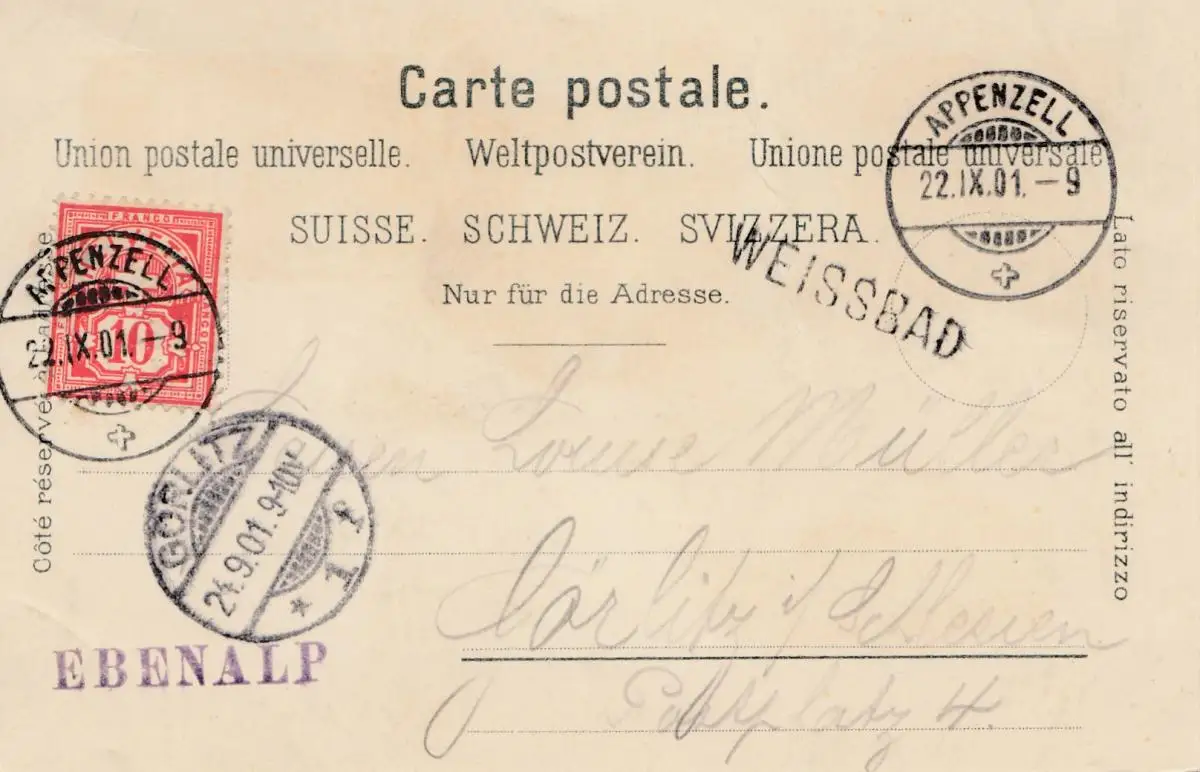 Carte postale.
Union postale universelle. Weltpostverein. Unione postale universale
SUISSE. SCHWEIZ. SVIZZERA.
Nur für die Adresse.
Côté réservé à l'adresse
Lato riservato all' indirizzo
FRANCO
10
APPENZELL
22.IX.01.-9
APPENZELL
22.IX.01.-9
WEISSBAD
GÖRLITZ
24.9.01.9-10N
1 f
EBENALP
Louise Müller
Görlitz i/Schlesien
Postplatz 4.